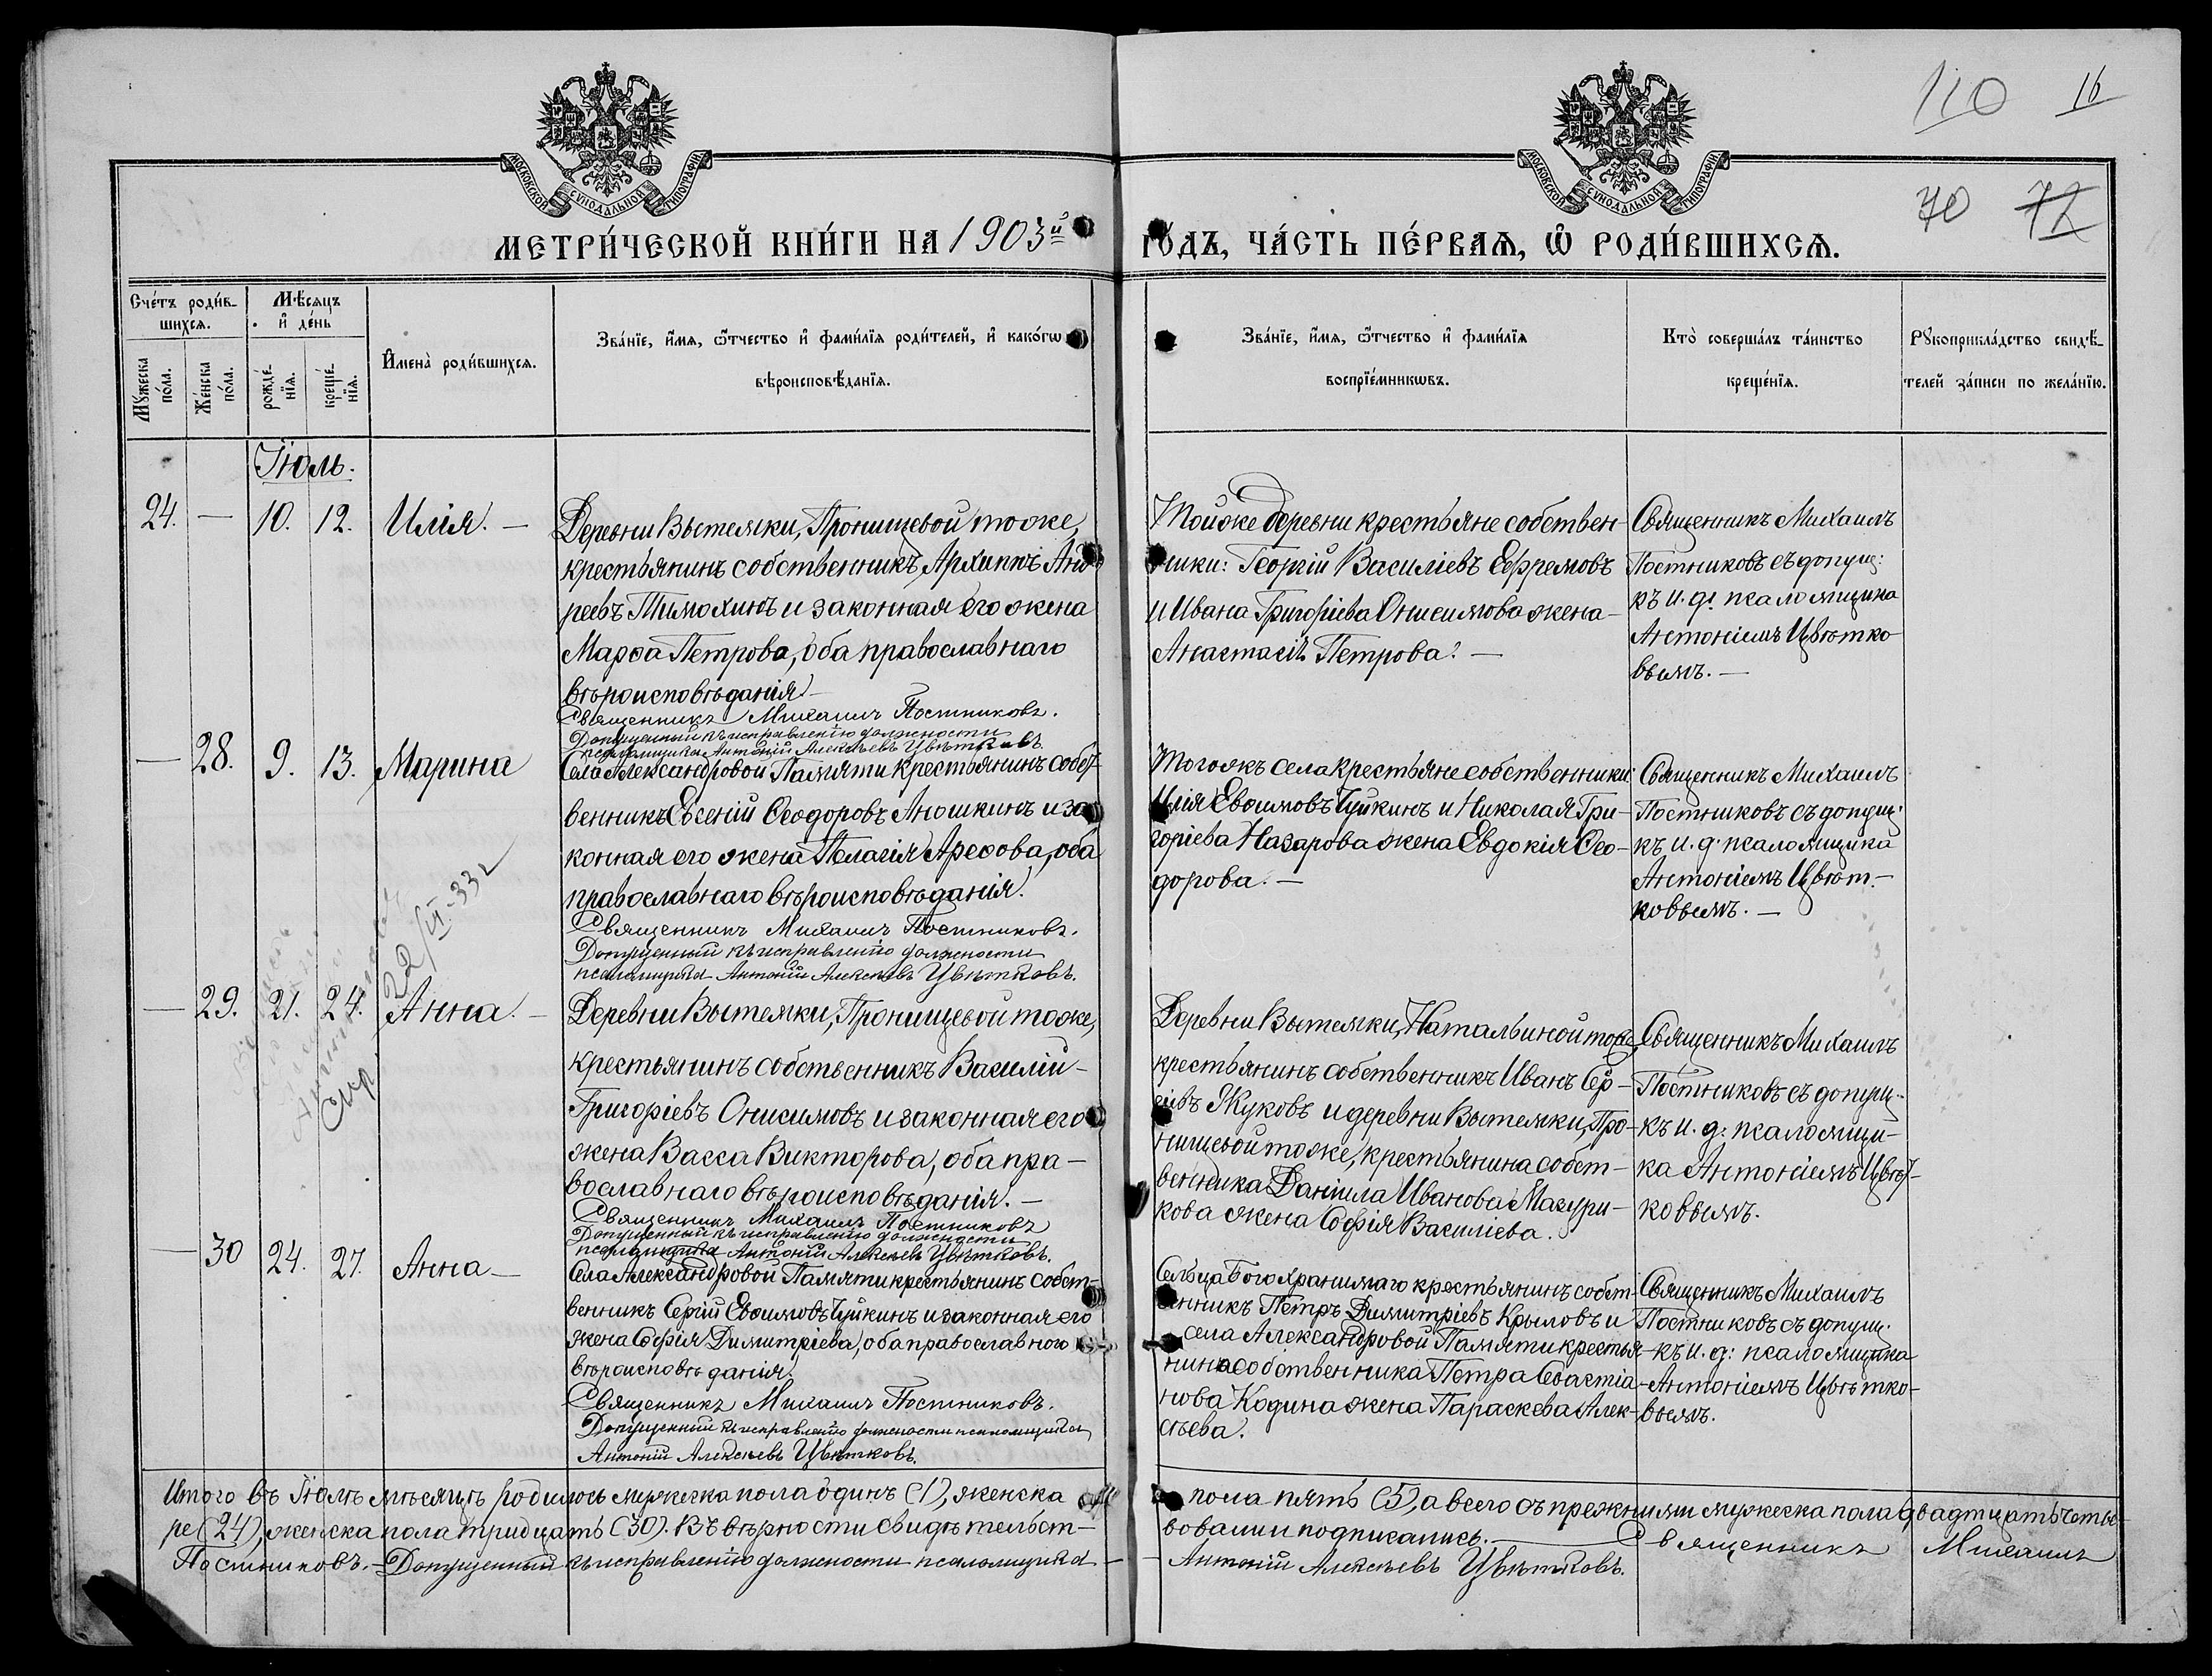 110 16
70 72
МОСКОВСКОЙ СУНОДАЛЬНОЙ ТИПОГРАФІИ
МОСКОВСКОЙ СУНОДАЛЬНОЙ ТИПОГРАФІИ
МЕТРИ́ЧЕСКОЙ КНИ́ГИ НА 1903й
ГО́ДЪ, ЧА́СТЬ ПЕ́РВАѦ, Ѡ҆ РОДИ́ВШИХСѦ.
Сче́тъ роди́в-
шихсѧ.
Мꙋ́жеска по́ла.
Же́нска по́ла.
Мѣ́сѧцъ
и҆ де́нь
рожде́-
нїѧ.
креще́-
нїѧ.
И҆мена̀ роди́вшихсѧ.
Зва́нїе, и҆́мѧ, ѻ҆́тчество и҆ фами́лїѧ роди́телей, и҆ како́гѡ
вѣроисповѣ́данїѧ.
Зва́нїе, и҆́мѧ, ѻ҆́тчество и҆ фами́лїѧ
воспрїе́мникѡвъ.
Кто̀ соверша́лъ та́инство
креще́нїѧ.
Рꙋкоприкла́дство свидѣ́-
телей за́писи по жела́нїю.
Іюль.
24. — 10. 12. Илія. —
Деревни Вытемки, Пронищевой тоже,
крестьянинъ собственникъ Архиппъ Анд
реевъ Тимохинъ и законная его жена
Марѳа Петрова, оба православнаго
вѣроисповѣданія. —
Священникъ Михаилъ Постниковъ.
Допущенный къ исправленію должности
псаломщика Антоній Алексѣевъ Цвѣтковъ
Тойже деревни крестьяне собствен-
ники: Георгій Василіевъ Ефремовъ
и Ивана Григоріева Онисимова жена —
Анастасія Петрова. —
Священникъ Михаилъ
Постниковъ съ допущ:
къ и. д. псаломщика
Антоніемъ Цвѣтко
вымъ. —
— 28. 9. 13. Марина
Села Александровой Памяти крестьянинъ собст-
венникъ Евсеній Ѳеодоровъ Аношкинъ и за
конная его жена Пелагія Арефова, оба
православнаго вѣроисповѣданія.
Священникъ Михаилъ Постниковъ.
Допущенный къ исправленію должности
псаломщика Антоній Алексѣевъ Цвѣтковъ.
Тогожъ села крестьяне собственники:
Илія Евѳимовъ Чуйкинъ и Николая Гри-
горіева Назарова жена Евдокія Ѳео-
дорова. —
Священникъ Михаилъ
Постниковъ съ допущ.
къ и. д. псаломщика
Антоніемъ Цвѣт-
ковымъ. —
22/VI-33 г
— 29. 21. 24. Анна. —
Деревни Вытемки, Пронищевой тоже,
крестьянинъ собственникъ Василій —
Григоріевъ Онисимовъ и законная его
жена Васса Викторова, оба пра-
вославнаго вѣроисповѣданія. —
Священникъ Михаилъ Постниковъ
Допущенный къ исправленію должности
псаломщика Антоній Алексѣевъ Цвѣтковъ.
Деревни Вытемки, Натальиной тожъ,
крестьянинъ собственникъ Иванъ Сер-
гіевъ Жуковъ и деревни Вытемки, Про-
нищевой тоже, крестьянина собст-
венника Даніила Иванова Мазури-
кова жена Софія Василіева.
Священникъ Михаилъ
Постниковъ съ допущ.
къ и. д. псаломщи-
ка Антоніемъ Цвѣт-
ковымъ.
— 30 24. 27. Анна —
Села Александровой Памяти крестьянинъ собст-
венникъ Сергій Евѳимовъ Чуйкинъ и законная его
жена Софія Димитріева, оба православнаго
вѣроисповѣданія.
Священникъ Михаилъ Постниковъ.
Допущенный къ исправленію должности псаломщика
Антоній Алексѣевъ Цвѣтковъ.
Сельца Богохранимаго крестьянинъ собст-
венникъ Петръ Димитріевъ Крыловъ и
села Александровой Памяти крестья-
нина собственника Петра Севастіа-
нова Кодина жена Параскева Алек-
сѣева.
Священникъ Михаилъ
Постниковъ съ допущ.
къ и. д: псаломщика
Антоніемъ Цвѣтко-
вымъ.
Итого въ Іюлѣ мѣсяцѣ родилось мужеска пола одинъ (1), женска пола пять (5), а всего съ прежними мужеска пола двадцать четы-
ре (24), женска пола тридцать (30). Въ вѣрности свидѣтельст- вовали и подписались: — Священникъ Михаилъ
Постниковъ. — Допущенный къ исправленію должности псаломщика — Антоній Алексѣевъ Цвѣтковъ.